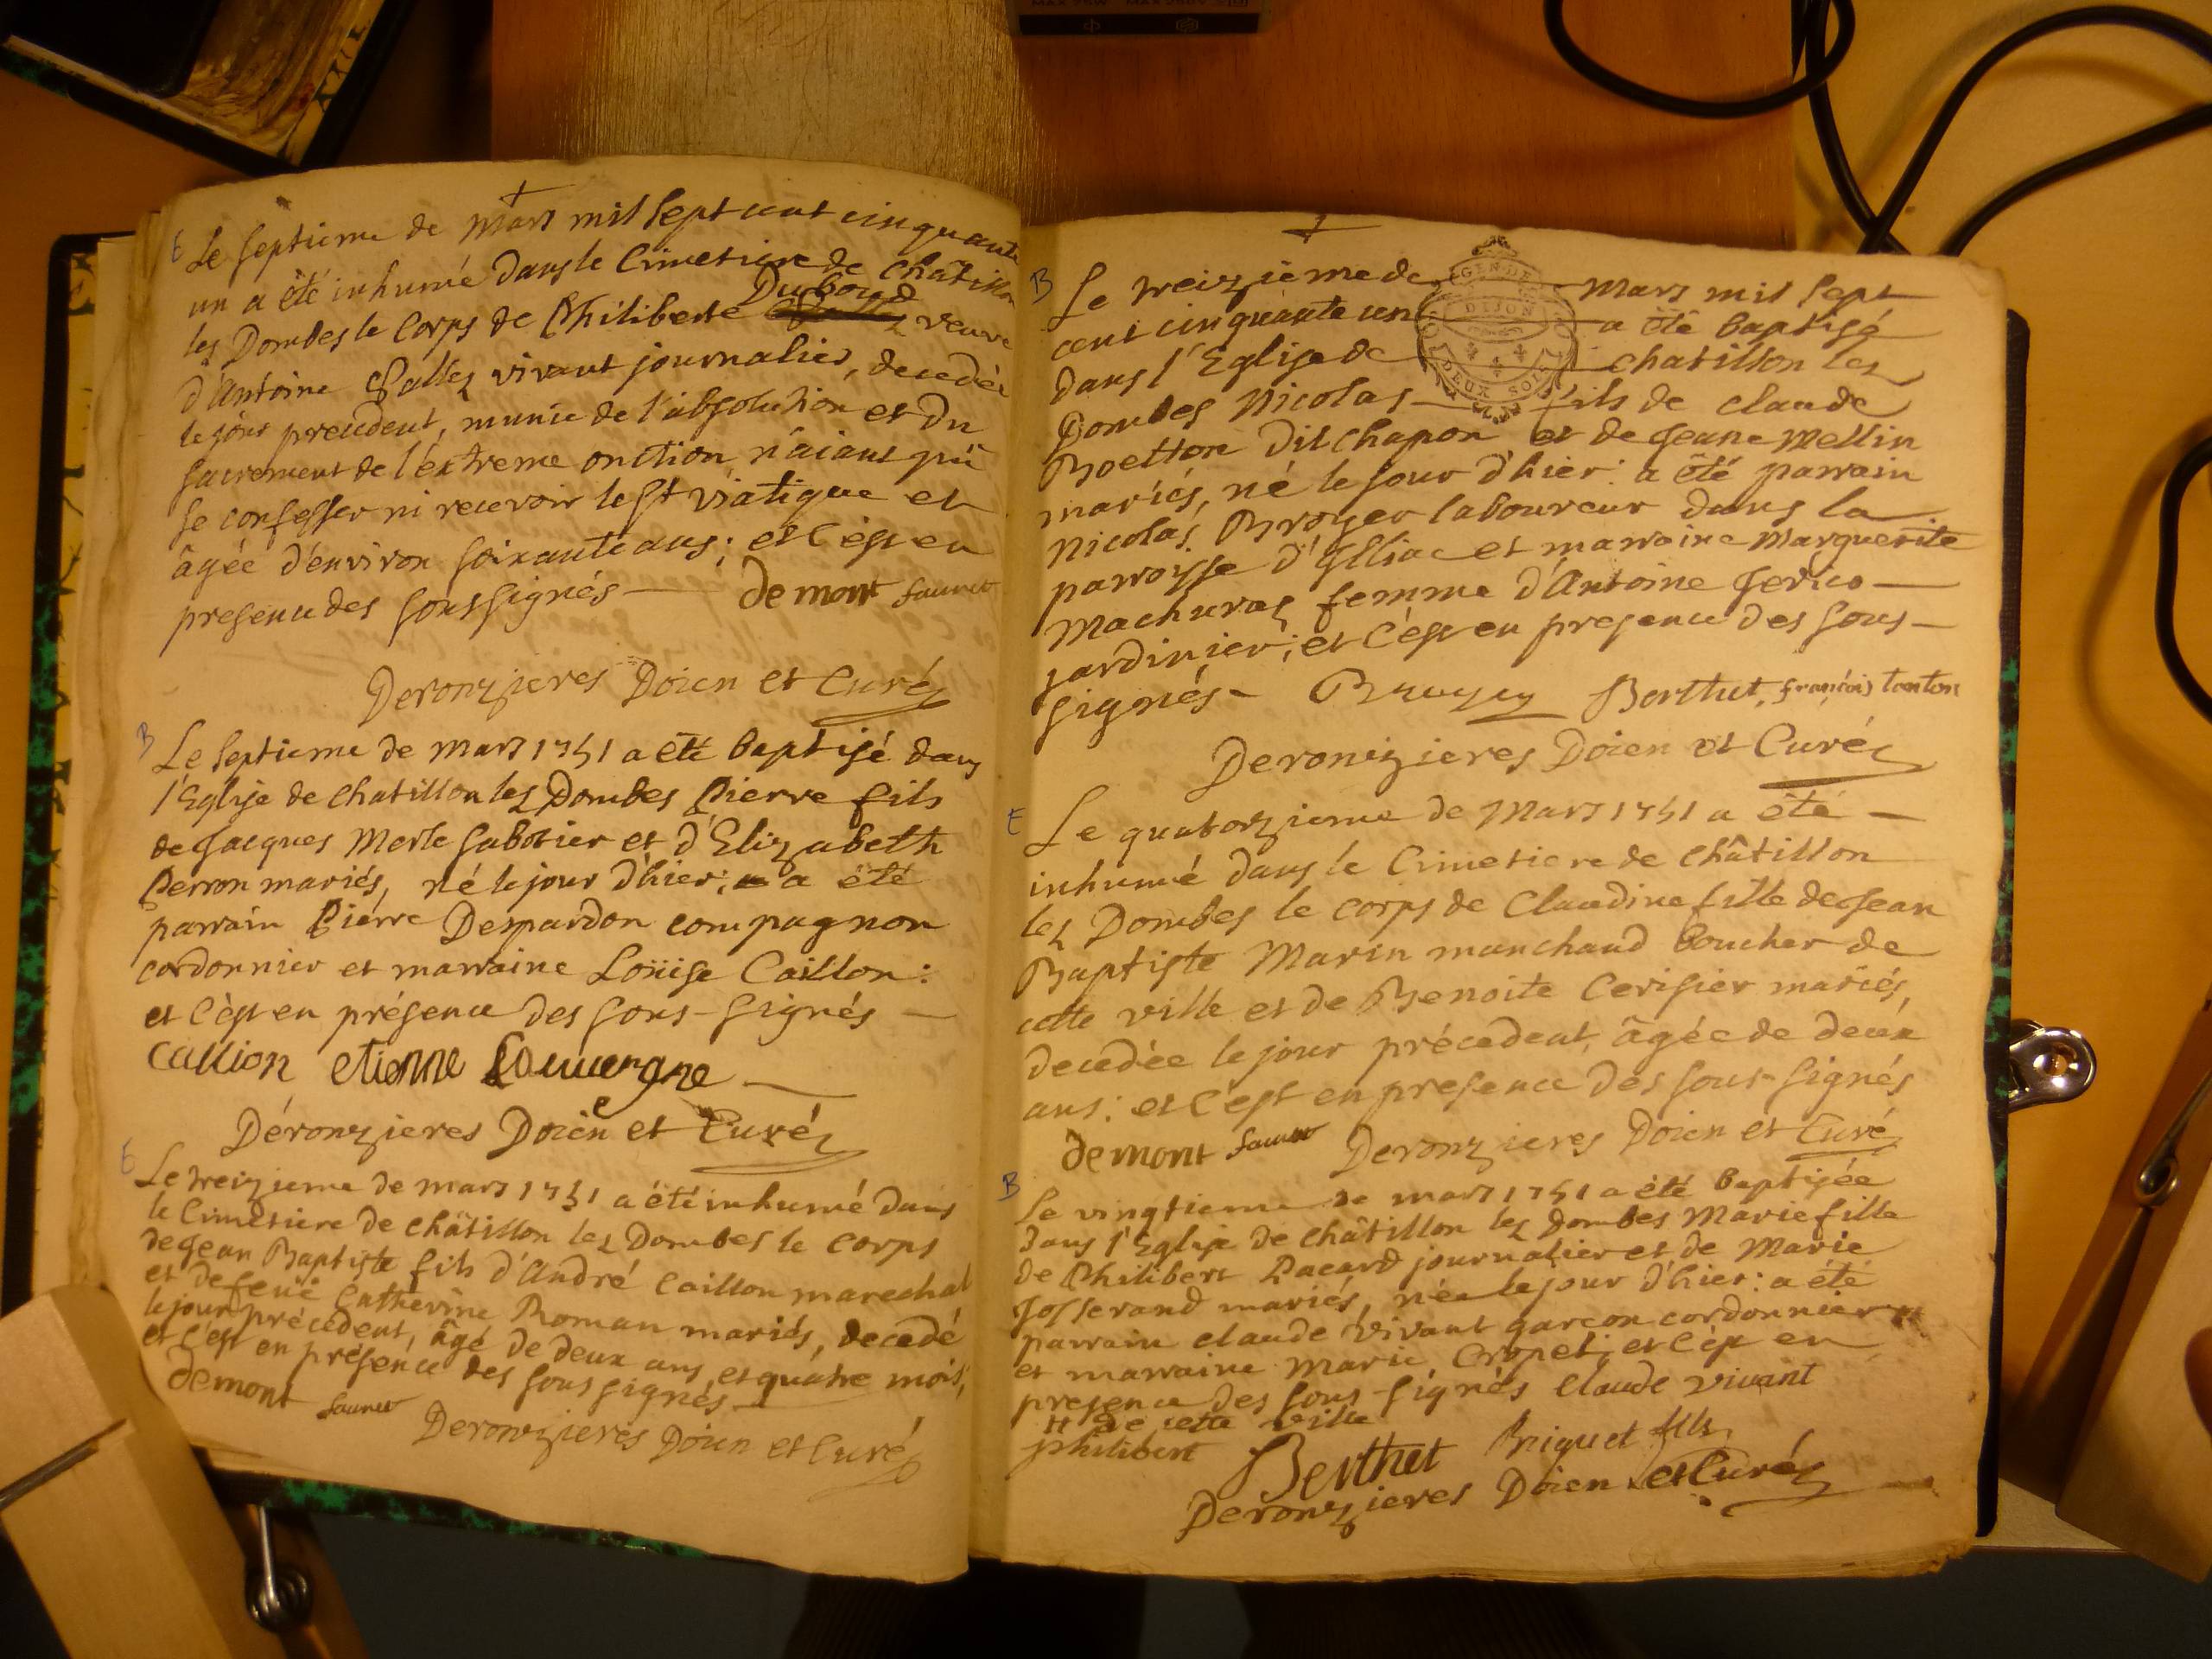 E Le septieme de Mars mil sept cent cinquante
un a été inhumé dans le Cimetiere de Châtillon
les Dombes le Corps de Philiberte Dubourd veuve
d'Antoine Vallez vivant journalier, decedée
le jour precedent, munie de l'absolution et du
sacrement de l'éxtreme onction n'aiant pü
se confesser ni recevoir le St viatique et
âgée d'environ soixante ans; et c'est en
presence des sous signés — demont
Deronzieres Doien et Curé
B Le septieme de mars 1751 a été baptisé dans
l'Eglise de chatillon les Dombes Pierre fils
de Jacques Merle sabotier et d'Elizabeth
Perron mariés, né le jour d'hier; a été
parrain Pierre Despardon compagnon
cordonnier et marraine Loüise Caillon:
et c'est en présence des sous-signés —
Callion etienne Lauvergne —
Déronzieres Doien et Curé
E Le treizieme de mars 1751 a été inhumé dans
le Cimetiere de châtillon les Dombes le corps
de Jean Baptiste fils d'André Caillon marechal
et de feüe Catherine Roman mariés, decedé
le jour précedent, âgé de deux ans et quatre mois;
et c'est en présence des sous signés —
demont Deronzieres Doien et Curé
B Le treizieme de Mars mil sept
cent cinquante un a été baptisé
dans l'Eglise de chatillon les
Dombes Nicolas — fils de claude
Boetton dit chapon et de Jeane Mellin
mariés, né le jour d'hier: a été parrain
Nicolas Broyer laboureur dans la
parroisse d'Illiac et marraine Marguerite
Machuras femme d'Antoine Jerico —
jardinier; et c'est en presence des sous —
signés — Berthet, françois tonton
Deronzieres Doien et Curé
E Le quatorzieme de Mars 1751 a été —
inhumé dans le Cimetiere de châtillon
les Dombes le corps de Claudine fille de Jean
Baptiste Marin marchand Boucher de
cette ville et de Benoite Cerisier mariés,
decedée le jour précedent, âgée de deux
ans: et c'est en presence des sous-signés
demont Deronzieres Doien et Curé
B Le vingtieme de mars 1751 a été baptisée
dans l'Eglise de châtillon les Dombes Marie fille
de Philibert Pacard journalier et de Marie
Josserand mariés, née le jour d'hier: a été
parrain claude vivant garcon cordonnier #
et marraine Marie Cropet; et c'est en
presence des sous-signés claude vivant
# de cette ville
philibert Berthet Briquet fils
Deronzieres Doien et Curé